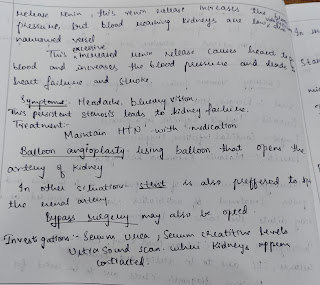 release renin, this renin release increases the
pressure, but blood reaching kidneys are low
narrowed vessel
excessive
This increased renin release causes heart to
blood and increases the blood pressure and leads to
heart failure and stroke.
Symptoms: Headache, blurry vision.
This persistent stenosis leads to kidney failure.
Treatment:-
Maintain HTN with medication
Balloon angioplasty using balloon that opens the
artery of kidney
In other situation stent is also preffered to
the renal artery.
Bypass surgery may also be opted
Investigations:- Serum urea, Serum creatitine levels
Ultra Sound scan - when kidneys appear
contracted